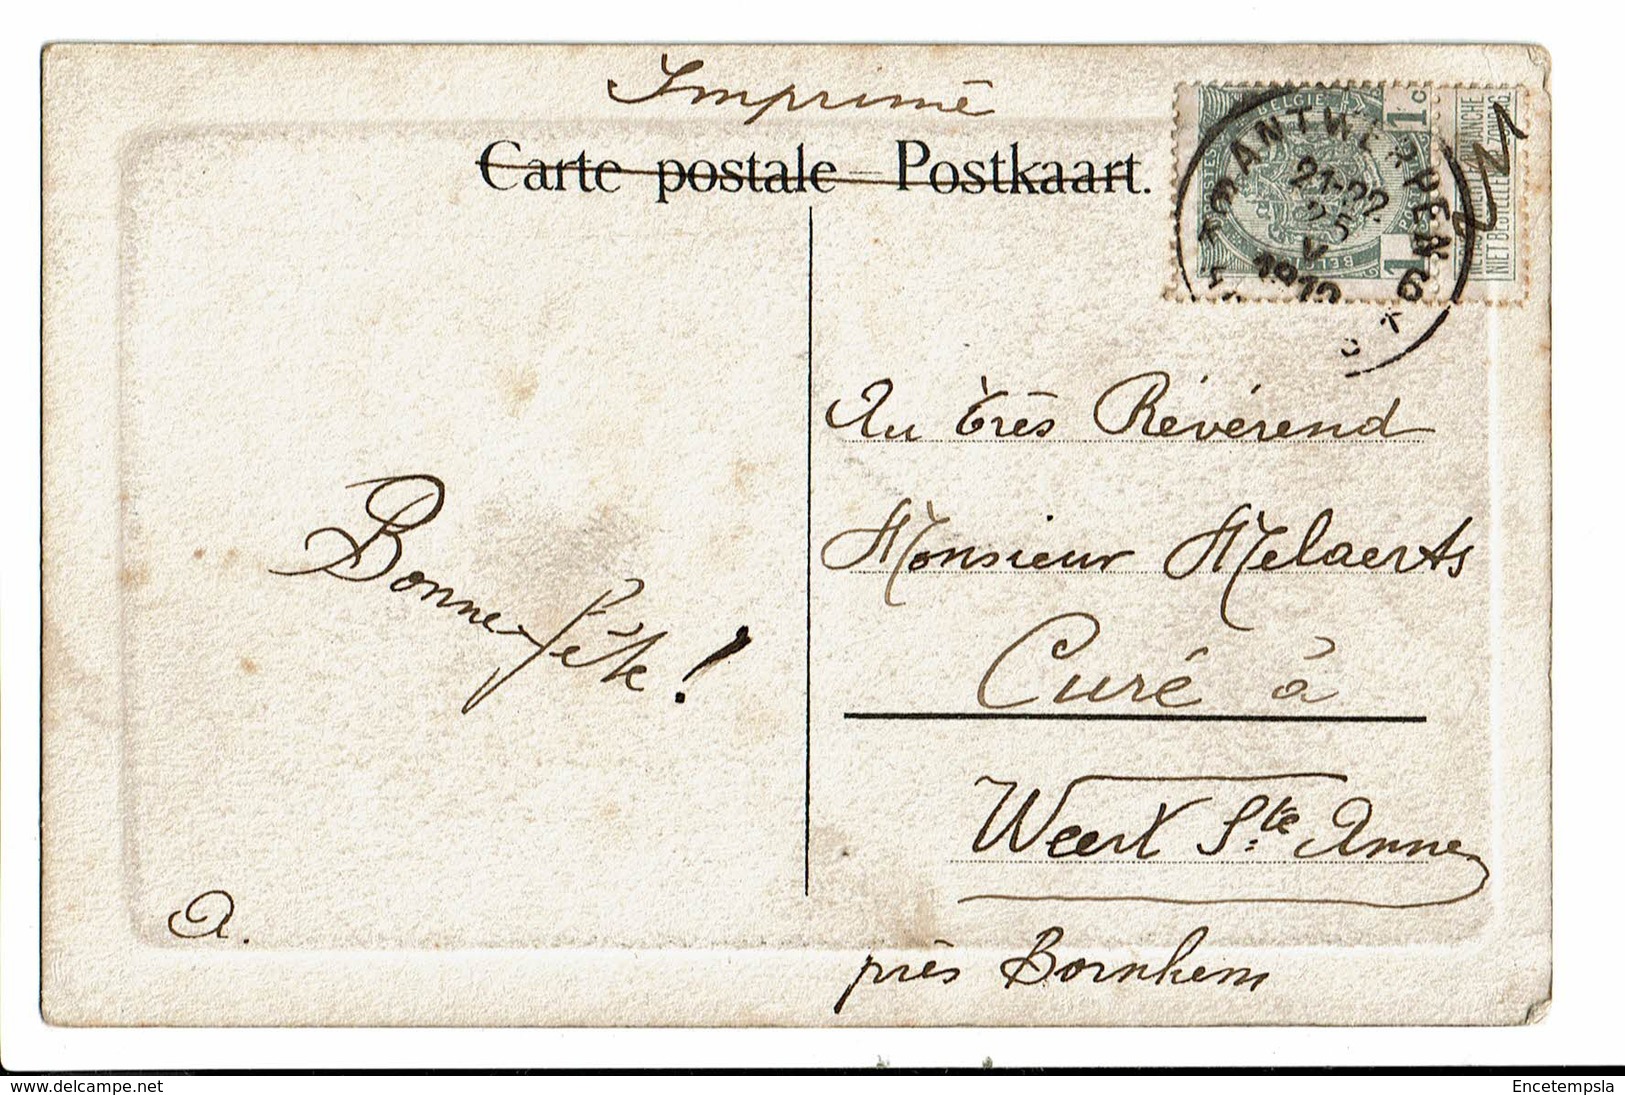 Imprimé
Carte postale – Postkaart.
ANTWERPEN
21-22
25
V
1912
BELGIE
POSTES
1
1 c
BELGI
NIET BESTELLEN
ZONDAG
Au très Révérend
Monsieur Melaerts
Curé à
Weert Ste Anne
près Bornhem
Bonne fête !
A.
www.delcampe.net
Encetempsla